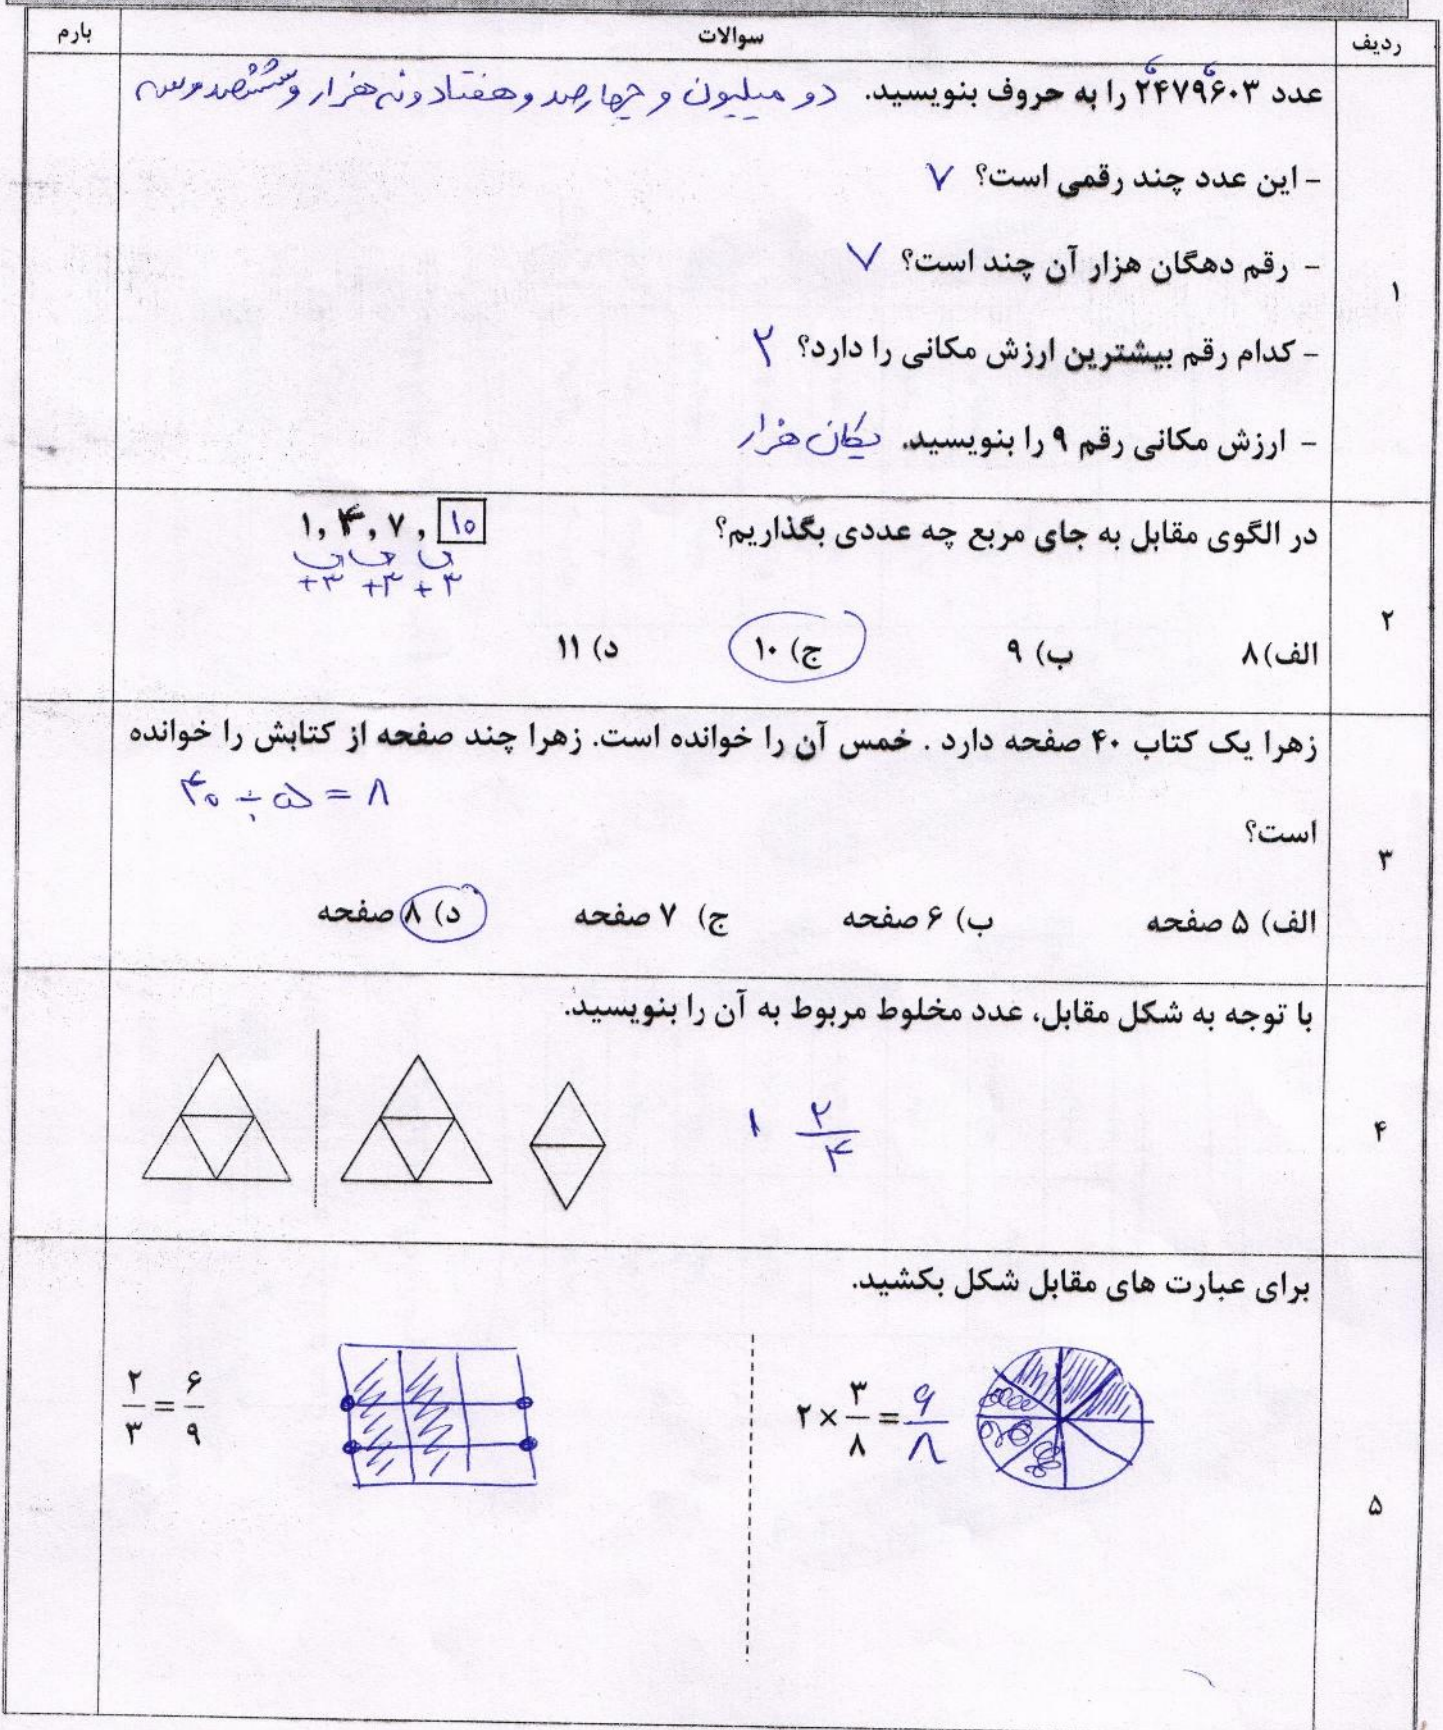 ردیف سوالات بارم
۱
عدد ۲۴۷۹۶۰۳ را به حروف بنویسید. دو میلیون و چهارصد و هفتاد و نه هزار و ششصد و سه
- این عدد چند رقمی است؟ ۷
- رقم دهگان هزار آن چند است؟ ۷
- کدام رقم بیشترین ارزش مکانی را دارد؟ ۲
- ارزش مکانی رقم ۹ را بنویسید. یکان هزار
۲
در الگوی مقابل به جای مربع چه عددی بگذاریم؟ ۱, ۴, ۷, ۱۰
+۳ +۳ +۳
الف) ۸ ب) ۹ ج) ۱۰ د) ۱۱
۳
زهرا یک کتاب ۴۰ صفحه دارد . خمس آن را خوانده است. زهرا چند صفحه از کتابش را خوانده
۴۰ ÷ ۵ = ۸
است؟
الف) ۵ صفحه ب) ۶ صفحه ج) ۷ صفحه د) ۸ صفحه
۴
با توجه به شکل مقابل، عدد مخلوط مربوط به آن را بنویسید.
۱ ۲/۴
۵
برای عبارت های مقابل شکل بکشید.
۲ × ۳/۸ = ۶/۸
۲/۳ = ۶/۹